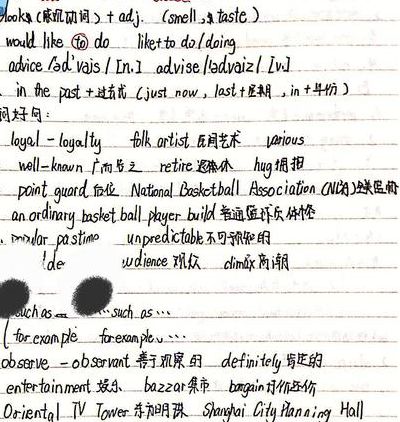 looks (感官动词) + adj. (smell, taste)
would like to do like to do / doing
advice /əd'vaɪs/ [n.] advise /ədvaɪz/ [v.]
in the past + 过去式 (just now, last + 星期, in + 年份)
词好句:
loyal - loyalty folk artist 民间艺术 various
well-known 广而告之 retire 退休 hug 拥抱
point guard 后位 National Basketball Association (NBA)
an ordinary basket ball player build 普通篮球员体格
popular pastime unpredictable 不可预知的
de udience 观众 climax 高潮
such as such as ...
for example for example, ...
observe - observant 善于观察的 definitely 肯定的
entertainment 娱乐 bazzar 集市 bargain 讨价还价
Oriental TV Tower 东方明珠 Shanghai City Planning Hall